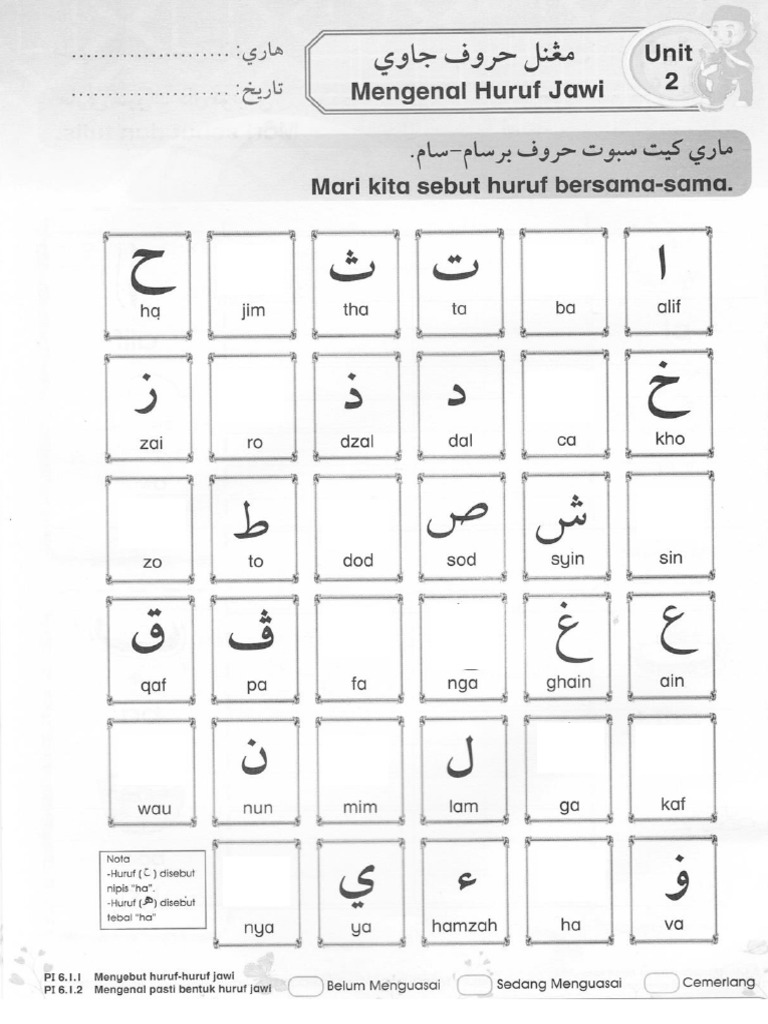 هاري: ......................
تاريخ: ......................
مڠنل حروف جاوي
Mengenal Huruf Jawi
Unit
2
ماري كيت سبوت حروف برسام-سام.
Mari kita sebut huruf bersama-sama.
ا
alif
ba
ت
ta
ث
tha
jim
ح
ha
خ
kho
ca
د
dal
ذ
dzal
ro
ز
zai
sin
ش
syin
ص
sod
dod
ط
to
zo
ع
ain
غ
ghain
nga
fa
ڤ
pa
ق
qaf
kaf
ga
ل
lam
mim
ن
nun
wau
ۏ
va
ha
ء
hamzah
ي
ya
nya
Nota
-Huruf (ح) disebut
nipis "ha".
-Huruf (ه) disebut
tebal "ha"
PI 6.1.1 Menyebut huruf-huruf jawi
PI 6.1.2 Mengenal pasti bentuk huruf jawi
Belum Menguasai
Sedang Menguasai
Cemerlang